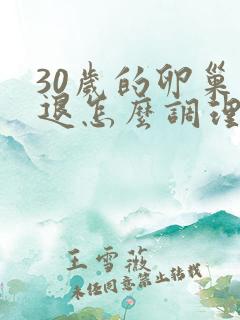 30歲的卵巢
退怎麼調理
王雪薇
未经同意禁止转载